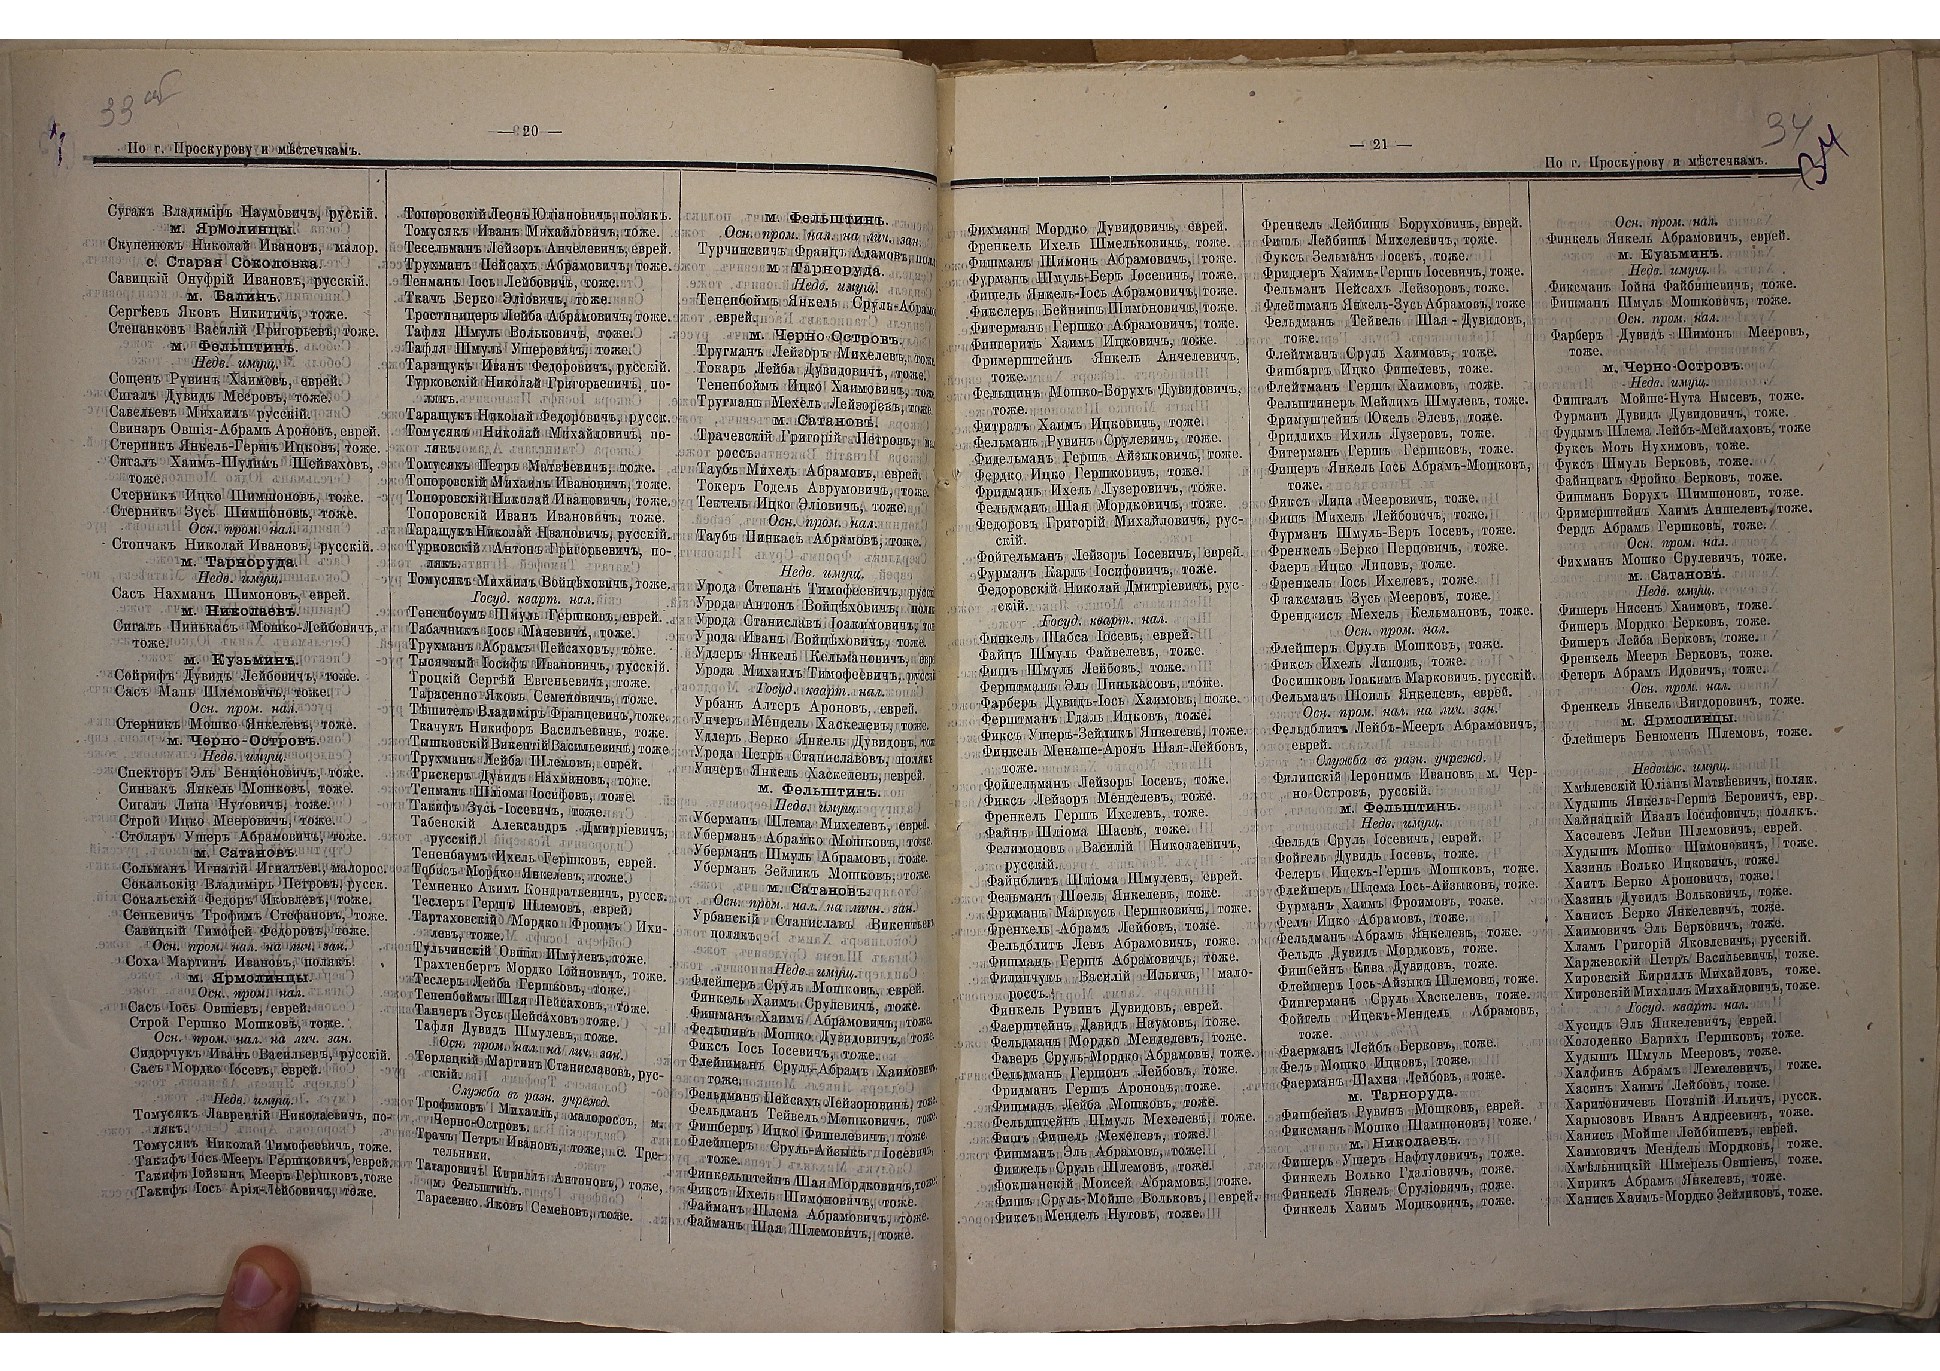 33 об
— 20 —
По г. Проскурову и мѣстечкамъ.
Сугакъ Владиміръ Наумовичъ, рускій.
м. Ярмолинцы.
Скупенюкъ Николай Ивановъ, малор.
с. Старая Соколовка.
Савицкій Онуфрій Ивановъ, русскій.
м. Балинъ.
Сергѣевъ Яковъ Никитичъ, тоже.
Степанковъ Василій Григорьевъ, тоже.
м. Фельштинъ.
Недв. имущ.
Сощенъ Рувинъ Хаимовъ, еврей.
Сигалъ Дувидъ Мееровъ, тоже.
Савельевъ Михаилъ русскій.
Свинаръ Овшія-Абрамъ Ароновъ, еврей.
Стерникъ Янкель-Гершъ Ицковъ, тоже.
Сигалъ Хаимъ-Шулимъ Шейваховъ,
тоже.
Стерникъ Ицко Шимшоновъ, тоже.
Стерникъ Зусь Шимшоновъ, тоже.
Осн. пром. нал.
Стопчакъ Николай Ивановъ, русскій.
м. Тарноруда.
Недв. имущ.
Сасъ Нахманъ Шимоновъ, еврей.
м. Николаевъ.
Сигалъ Пинькасъ Мошко-Лейбовичъ,
тоже.
м. Кузьминъ.
Сойрифъ Дувидъ Лейбовичъ, тоже.
Сасъ Мань Шлемовичъ, тоже.
Осн. пром. нал.
Стерникъ Мошко Янкелевъ, тоже.
м. Черно-Островъ.
Недв. имущ.
Спекторъ Эль Бенціоновичъ, тоже.
Синвакъ Янкель Мошковъ, тоже.
Сигалъ Липа Нутовичъ, тоже.
Строй Ицко Мееровичъ, тоже.
Столяръ Ушеръ Абрамовичъ, тоже.
м. Сатановъ.
Сольманъ Игнатій Игнатьев., малорос.
Сокальскій Владиміръ Петровъ, русск.
Сокальскій Федоръ Яковлевъ, тоже.
Сенкевичъ Трофимъ Стефановъ, тоже.
Савицкій Тимофей Федоровъ, тоже.
Осн. пром. нал. на лич. зан.
Соха Мартинъ Ивановъ, полякъ.
м. Ярмолинцы.
Осн. пром. нал.
Сасъ Іось Овшіевъ, еврей.
Строй Гершко Мошковъ, тоже.
Осн. пром. нал. на лич. зан.
Сидорчукъ Иванъ Васильевъ, русскій.
Сасъ Мордко Іосевъ, еврей.
Недв. имущ.
Томусякъ Лаврентій Николаевичъ, по-
лякъ.
Томусякъ Николай Тимофеевичъ, тоже.
Такифъ Іось Мееръ Гершковичъ, еврей.
Такифъ Іойзынъ Мееръ Гершковъ, тоже
Такифъ Іось Арія-Лейбовичъ, тоже.
Топоровскій Леонъ Юліановичъ, полякъ.
Томусякъ Иванъ Михайловичъ, тоже.
Тесельманъ Лейзоръ Анчелевичъ, еврей.
Трухманъ Пейсахъ Абрамовичъ, тоже.
Тенманъ Іось Лейбовичъ, тоже.
Ткачъ Берко Эліовичъ, тоже.
Тростяницеръ Лейба Абрамовичъ, тоже.
Тафля Шмуль Вольковичъ, тоже.
Тафля Шмуль Ушеровичъ, тоже.
Таращукъ Иванъ Федоровичъ, русскій.
Турковскій Николай Григорьевичъ, по-
лякъ.
Таращукъ Николай Федоровичъ, русск.
Томусякъ Николай Михайловичъ, по-
лякъ.
Томусякъ Петръ Матвѣевичъ, тоже.
Топоровскій Михаилъ Ивановичъ, тоже.
Топоровскій Николай Ивановичъ, тоже.
Топоровскій Иванъ Ивановичъ, тоже.
Таращукъ Николай Ивановичъ, русскій.
Турковскій Антонъ Григорьевичъ, по-
лякъ.
Томусякъ Михаилъ Войцѣховичъ, тоже.
Госуд. кварт. нал.
Тененбоумъ Шмуль Гершковъ, еврей.
Табачникъ Іось Маневичъ, тоже.
Трухманъ Абрамъ Пейсаховъ, тоже.
Тысячный Іосифъ Ивановичъ, русскій.
Троцкій Сергѣй Евгеньевичъ, тоже.
Тарасенко Яковъ Семеновичъ, тоже.
Тѣшитель Владиміръ Францевичъ, тоже.
Ткачукъ Никифоръ Васильевичъ, тоже.
Тышковскій Викентій Васильевичъ, тоже
Трухманъ Лейба Шлемовъ, еврей.
Трискеръ Дувидъ Нахмановъ, тоже.
Тепманъ Шліома Іосифовъ, тоже.
Такифъ Зусь-Іосевичъ, тоже.
Табенскій Александръ Дмитріевичъ,
русскій.
Тененбаумъ Ихель Гершковъ, еврей.
Тобисъ Мордко Янкелевъ, тоже.
Темненко Акимъ Кондратьевичъ, русск.
Теслеръ Гершъ Шлемовъ, еврей.
Тартаховскій Мордко Фроимъ Ихи-
левъ, тоже.
Тульчинскій Овшія Шмулевъ, тоже.
Трахтенбергъ Мордко Іойновичъ, тоже.
Теслеръ Лейба Гершковъ, тоже.
Тененбоймъ Шая Пейсаховъ, тоже.
Танчеръ Зусь Пейсаховъ тоже.
Тафля Дувидъ Шмулевъ, тоже.
Осн. пром. нал. на лич. зан.
Терлецкій Мартинъ Станиславовъ, рус-
скій.
Служба въ разн. учрежд.
Трофимовъ Михаилъ, малороссъ, м.
Черно-Островъ.
Трачъ Петръ Ивановъ, тоже, с. Тре-
тельники.
Татаровичъ Кириллъ Антоновъ, тоже,
м. Фельштинъ.
Тарасенко Яковъ Семеновъ, тоже.
м. Фельштинъ.
Осн. пром. нал. на лич. зан.
Турчиневичъ Францъ Адамовъ,
м. Тарноруда.
Недв. имущ.
Тененбоймъ Янкель Сруль-Абрамо
еврей.
м. Черно Островъ.
Тругманъ Лейзоръ Михелевъ, тоже
Токаръ Лейба Дувидовичъ, тоже.
Тененбоймъ Ицко Хаимовичъ, тоже
Тругманъ Мехель Лейзоревъ, тоже
м. Сатановъ.
Трачевскій Григорій Петровъ,
россъ.
Таубъ Михель Абрамовъ, еврей.
Токеръ Годель Аврумовичъ, тоже.
Тектель Ицко Эліовичъ, тоже.
Осн. пром. нал.
Таубъ Пинкасъ Абрамовъ, тоже.
Недв. имущ.
Урода Степанъ Тимофеевичъ, русск
Урода Антонъ Войцѣховичъ, поляк
Урода Станиславъ Іоакимовичъ,
Урода Иванъ Войцѣховичъ, тоже.
Удлеръ Янкель Кельмановичъ, евр
Урода Михаилъ Тимофеевичъ, русскі
Госуд. кварт. нал.
Урбанъ Алтеръ Ароновъ, еврей.
Унчеръ Мендель Хаскелевъ, тоже.
Удлеръ Берко Янкель Дувидовъ,
Урода Петръ Станиславовъ, полякъ
Унчеръ Янкель Хаскелецъ, еврей.
м. Фельштинъ.
Недв. имущ.
Уберманъ Шлема Михелевъ, еврей.
Уберманъ Абрамко Мошковъ, тоже.
Уберманъ Шмуль Абрамовъ, тоже.
Уберманъ Зейликъ Мошковъ, тоже.
м. Сатановъ.
Осн. пром. нал. на личн. зан.
Урбанскій Станиславъ Викентьев
полякъ.
Недв. имущ.
Флейшеръ Сруль Мошковъ, еврей.
Финкель Хаимъ Срулевичъ, тоже.
Фишманъ Хаимъ Абрамовичъ, тоже.
Фельшинъ Мошко Дувидовичъ, тоже
Фиксъ Іось Іосевичъ, тоже.
Флейшманъ Сруль-Абрамъ Хаимович
тоже.
Фельдманъ Пейсахъ Лейзоровичъ, тоже.
Фельдманъ Тейвель Мошковичъ, тоже.
Фишбергъ Ицко Фишелевичъ, тоже.
Флейшеръ Сруль-Айзыкъ Іосевичъ,
тоже.
Финкельштейнъ Шая Мордковичъ, тоже.
Фиксъ Ихель Шимоновичъ, тоже.
Файманъ Шлема Абрамовичъ, тоже.
Файманъ Шая Шлемовичъ, тоже.
34
34
— 21 —
По г. Проскурову и мѣстечкамъ.
Фихманъ Мордко Дувидовичъ, еврей.
Френкель Ихель Шмельковичъ, тоже.
Фишманъ Шимонъ Абрамовичъ, тоже.
Фурманъ Шмуль-Беръ Іосевичъ, тоже.
Фишель Янкель-Іось Абрамовичъ, тоже.
Фикслеръ Бейнишъ Шимоновичъ, тоже.
Фитерманъ Гершко Абрамовичъ, тоже.
Фингеритъ Хаимъ Ицковичъ, тоже.
Фримерштейнъ Янкель Анчелевичъ,
тоже.
Фельшинъ Мошко-Борухъ Дувидовичъ,
тоже.
Фитратъ Хаимъ Ицковичъ, тоже.
Фельманъ Рувинъ Срулевичъ, тоже.
Фидельманъ Гершъ Айзыковичъ, тоже.
Фердко Ицко Гершковичъ, тоже.
Фридманъ Ихель Лузеровичъ, тоже.
Фельдманъ Шая Мордковичъ, тоже.
Федоровъ Григорій Михайловичъ, рус-
скій.
Фойгельманъ Лейзоръ Іосевичъ, еврей.
Фурманъ Карлъ Іосифовичъ, тоже.
Федоровскій Николай Дмитріевичъ, рус-
скій.
Госуд. кварт. нал.
Финкель Шабса Іосевъ, еврей.
Файцъ Шмуль Файвелевъ, тоже.
Фищъ Шмуль Лейбовъ, тоже.
Ферштманъ Эль Пинькасовъ, тоже.
Фарберъ Дувидъ-Іось Хаимовъ, тоже.
Ферштманъ Гдаль Ицковъ, тоже.
Фиксъ Ушеръ-Зейликъ Янкелевъ, тоже.
Финкель Менаше-Аронъ Шая-Лейбовъ,
тоже.
Фойгельманъ Лейзоръ Іосевъ, тоже.
Фиксъ Лейзоръ Менделевъ, тоже.
Френкель Гершъ Ихелевъ, тоже.
Файнъ Шліома Шаевъ, тоже.
Фелимоновъ Василій Николаевичъ,
русскій.
Файнблитъ Шліома Шмулевъ, еврей.
Фельманъ Шоель Янкелевъ, тоже.
Фриманъ Маркусъ Гершковичъ, тоже.
Френкель Абрамъ Лейбовъ, тоже.
Фельдблитъ Левъ Абрамовичъ, тоже.
Фишманъ Гершъ Абрамовичъ, тоже.
Филипчукъ Василій Ильичъ, мало-
россъ.
Финкель Рувинъ Дувидовъ, еврей.
Фаерштейнъ Давидъ Наумовъ, тоже.
Фельдманъ Мордко Менделевъ, тоже.
Фаверъ Сруль-Мордко Абрамовъ, тоже.
Фельдманъ Гершонъ Лейбовъ, тоже.
Фридманъ Гершъ Ароновъ, тоже.
Фишманъ Лейба Мошковъ, тоже.
Фельдштейнъ Шмуль Мехелевъ, тоже.
Фишъ Фишель Мехелевъ, тоже.
Фишманъ Эль Абрамовъ, тоже.
Финкель Сруль Шлемовъ, тоже.
Фокшанскій Моисей Абрамовъ, тоже.
Фишъ Сруль-Мойше Вольковъ, еврей.
Фиксъ Мендель Нутовъ, тоже.
Френкель Лейбишъ Боруховичъ, еврей.
Фишъ Лейбишъ Михелевичъ, тоже.
Фуксъ Зельманъ Іосевъ, тоже.
Фридлеръ Хаимъ-Гершъ Іосевичъ, тоже.
Фельманъ Пейсахъ Лейзоровъ, тоже.
Флейшманъ Янкель-Зусь Абрамовъ, тоже
Фельдманъ Тейвель Шая-Дувидовъ,
тоже.
Флейтманъ Сруль Хаимовъ, тоже.
Фишбаргъ Ицко Фишелевъ, тоже.
Флейтманъ Гершъ Хаимовъ, тоже.
Фельштинеръ Мейлихъ Шмулевъ, тоже.
Фримуштейнъ Юкель Элевъ, тоже.
Фридлихъ Ихиль Лузеровъ, тоже.
Фитерманъ Гершъ Гершковъ, тоже.
Фишеръ Янкель Іось Абрамъ-Мошковъ,
тоже.
Фиксъ Липа Мееровичъ, тоже.
Фишъ Михель Лейбовичъ, тоже.
Фурманъ Шмуль-Беръ Іосевъ, тоже.
Френкель Берко Перцовичъ, тоже.
Фаеръ Ицко Липовъ, тоже.
Френкель Іось Ихелевъ, тоже.
Флаксманъ Зусь Мееровъ, тоже.
Френдлисъ Мехель Кельмановъ, тоже.
Осн. пром. нал.
Флейшеръ Сруль Мошковъ, тоже.
Фиксъ Ихель Липовъ, тоже.
Фосишковъ Іоакимъ Марковичъ, русскій.
Фельманъ Шоиль Янкелевъ, еврей.
Осн. пром. нал. на лич. зан.
Фельдблитъ Лейбъ-Мееръ Абрамовичъ,
еврей.
Служба въ разн. учрежд.
Филипскій Іеронимъ Ивановъ м. Чер-
но-Островъ, русскій.
м. Фельштинъ.
Недв. имущ.
Фельдъ Сруль Іосевичъ, еврей.
Фойгель Дувидъ Іосевъ, тоже.
Фелеръ Ицекъ-Гершъ Мошковъ, тоже.
Флейшеръ Шлема Іось-Айзыковъ, тоже.
Фурманъ Хаимъ Фроимовъ, тоже.
Фель Ицко Абрамовъ, тоже.
Фельдманъ Абрамъ Янкелевъ, тоже.
Фельдъ Дувидъ Мордковъ, тоже.
Фишбейнъ Кива Дувидовъ, тоже.
Флейшеръ Іось-Айзыкъ Шлемовъ, тоже.
Фингерманъ Сруль Хаскелевъ, тоже.
Фойгель Ицекъ-Мендель Абрамовъ,
тоже.
Фаерманъ Лейбъ Берковъ, тоже.
Фель Мошко Ицковъ, тоже.
Фаерманъ Шахна Лейбовъ, тоже.
м. Тарноруда.
Фишбейнъ Рувинъ Мошковъ, еврей.
Фиксманъ Мошко Шамшоновъ, тоже.
м. Николаевъ.
Фишеръ Ушеръ Нафтуловичъ, тоже.
Финкель Волько Гдаліовичъ, тоже.
Финкель Янкель Сруліовичъ, тоже.
Финкель Хаимъ Мошковичъ, тоже.
Осн. пром. нал.
Финкель Янкель Абрамовичъ, еврей.
м. Кузьминъ.
Недв. имущ.
Фиксманъ Іойна Файбишевичъ, тоже.
Фишманъ Шмуль Мошковичъ, тоже.
Осн. пром. нал.
Фарберъ Дувидъ-Шимонъ Мееровъ,
тоже.
м. Черно-Островъ.
Недв. имущ.
Фишгалъ Мойше-Нута Нысевъ, тоже.
Фурманъ Дувидъ Дувидовичъ, тоже.
Фудымъ Шлема Лейбъ-Мейлаховъ, тоже
Фуксъ Моть Нухимовъ, тоже.
Фуксъ Шмуль Берковъ, тоже.
Файнцвагъ Фройко Берковъ, тоже.
Фишманъ Борухъ Шимшоновъ, тоже.
Фримерштейнъ Хаимъ Аншелевъ, тоже.
Фердъ Абрамъ Гершковъ, тоже.
Осн. пром. нал.
Фихманъ Мошко Срулевичъ, тоже.
м. Сатановъ.
Недв. имущ.
Фишеръ Нисенъ Хаимовъ, тоже.
Фишеръ Мордко Берковъ, тоже.
Фишеръ Лейба Берковъ, тоже.
Френкель Мееръ Берковъ, тоже.
Фетеръ Абрамъ Идовичъ, тоже.
Осн. пром. нал.
Френкель Янкель Вигдоровичъ, тоже.
м. Ярмолинцы.
Флейшеръ Бенюменъ Шлемовъ, тоже.
Недвиж. имущ.
Хмѣлевскій Юліанъ Матвѣевичъ, поляк.
Худышъ Янкель-Гершъ Беровичъ, евр.
Хайнацкій Иванъ Іосифовичъ, полякъ.
Хаселевъ Лейви Шлемовичъ, еврей.
Худышъ Мошко Шимоновичъ, тоже.
Хазинъ Волько Ицковичъ, тоже.
Хаитъ Берко Ароновичъ, тоже.
Хазинъ Дувидъ Вольковичъ, тоже.
Ханисъ Берко Янкелевичъ, тоже.
Хаимовичъ Эль Берковичъ, тоже.
Хламъ Григорій Яковлевичъ, русскій.
Харжевскій Петръ Васильевичъ, тоже.
Хировскій Кириллъ Михайловъ, тоже.
Хировскій Михаилъ Михайловичъ, тоже.
Госуд. кварт. нал.
Хусидъ Эль Янкелевичъ, еврей.
Холоденко Барихъ Гершковъ, тоже.
Худышъ Шмуль Мееровъ, тоже.
Халфинъ Абрамъ Лемелевичъ, тоже.
Хасинъ Хаимъ Лейбовъ, тоже.
Харитоничевъ Потапій Ильичъ, русск.
Харьюзовъ Иванъ Андреевичъ, тоже.
Ханисъ Мойше Лейбишевъ, еврей.
Хаимовичъ Мендель Мордковъ, тоже.
Хмѣльницкій Шмерель Овшіевъ, тоже.
Хирикъ Абрамъ Янкелевъ, тоже.
Ханисъ Хаимъ-Мордко Зейликовъ, тоже.